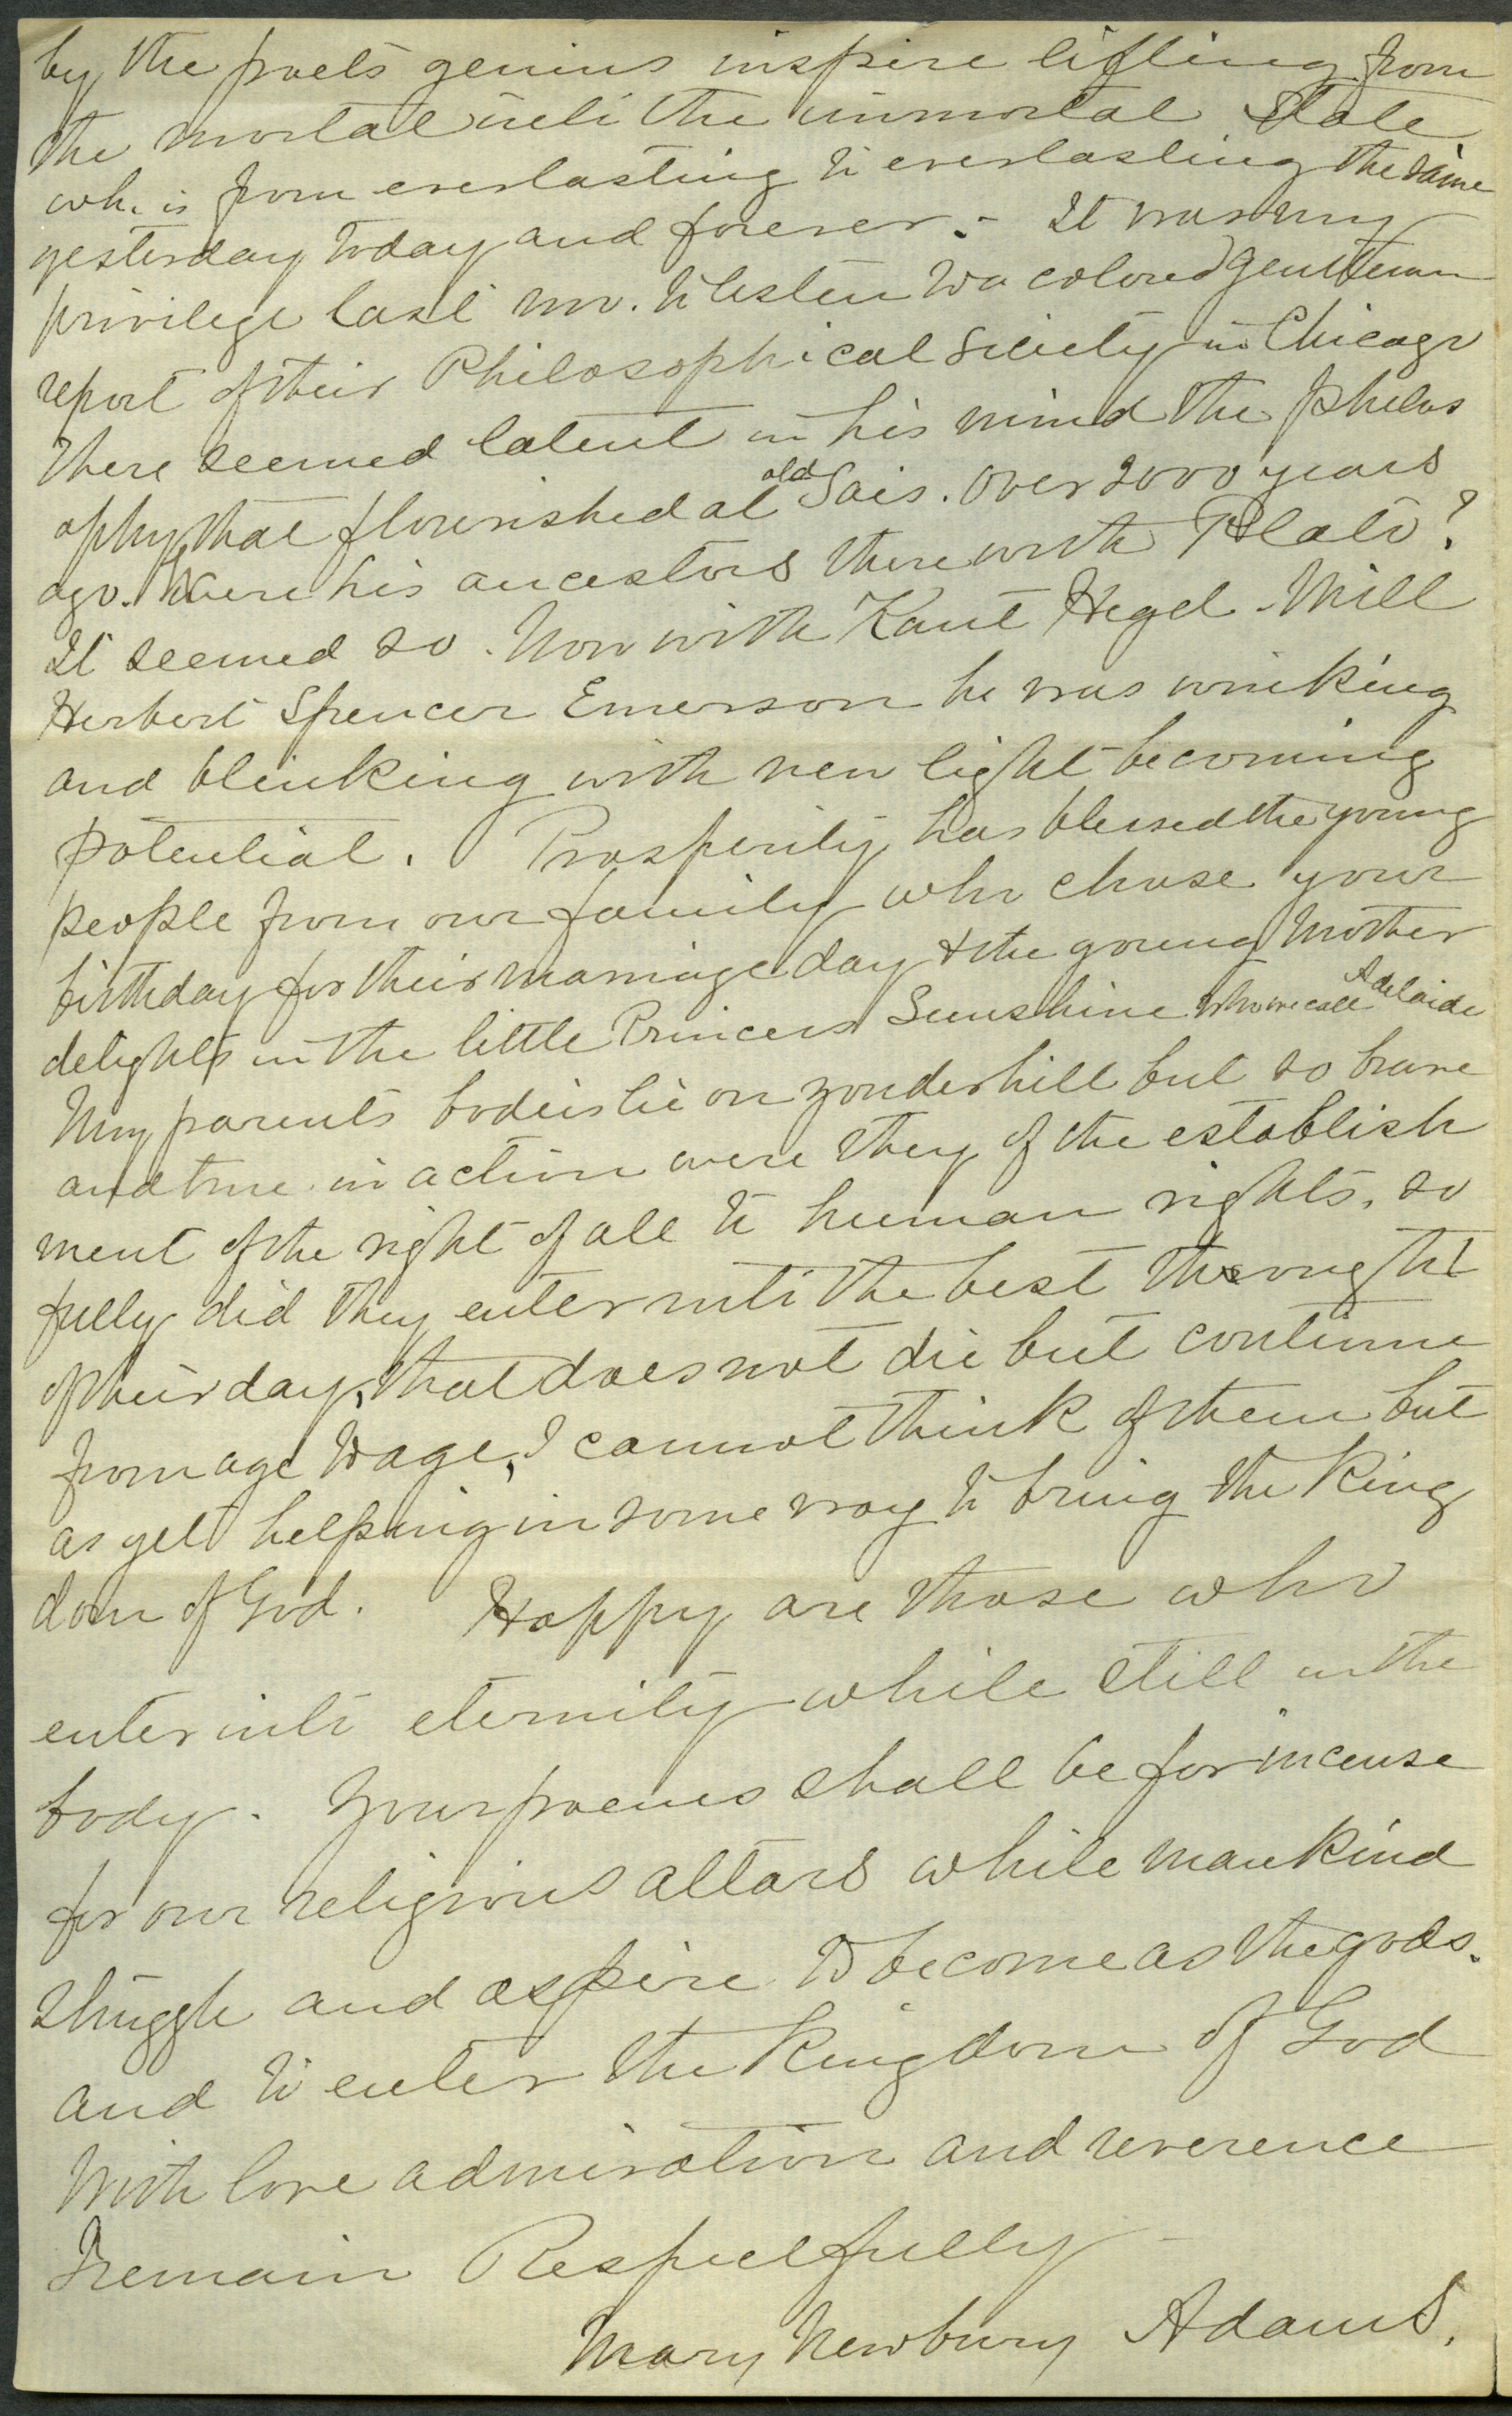 by the poets genius inspire lifting from
the mortal into the immortal state
wh. is from everlasting to everlasting the same
yesterday today and forever. - It was my
privilege last nov. to listen to a colored gentleman
report of their Philosophical Society in Chicago
There seemed latent in his mind the philos
ophy that flourished at old Sais. Over 2000 years
ago. Were his ancestors there with Plato?
It seemed so. Now with Kant Hegel - Mill
Herbert Spencer Emerson he was winking
and blinking with new light becoming
potential. Prosperity has blessed the young
people from our family who chose your
birthday for their marriage day & the young mother
delights in the little Princess Sunshine who we call Adelaide
My parents bodies lie on yonder hill but so brave
and true in action were they of the establish
ment of the right of all to human rights, so
fully did they enter into the best thought
of their day, that does not die but continue
from age to age, I cannot think of them but
as yet helping in some way to bring the King
dom of God. Happy are those who
enter into eternity while still in the
body. Your poems shall be for incense
for our religious altars while mankind
struggle and aspire to become as the gods.
and to enter the Kingdom of God
With love admiration and reverence
I remain Respectfully
Mary Newbury Adams.